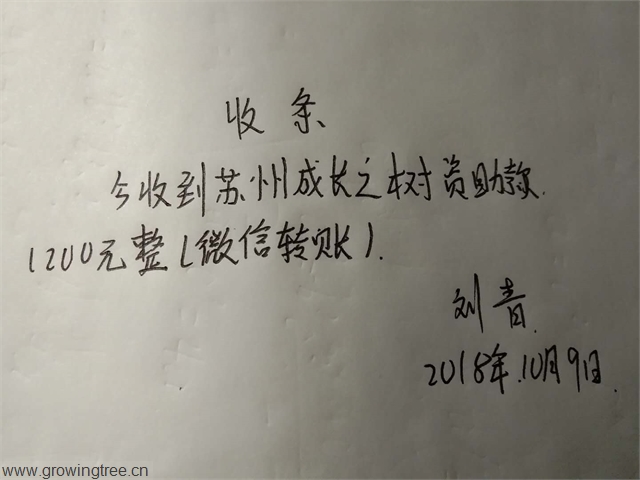 收条
今收到苏州成长之树资助款.
1200元整(微信转账).
刘青
2018年.10月9日.
www.growingtree.cn